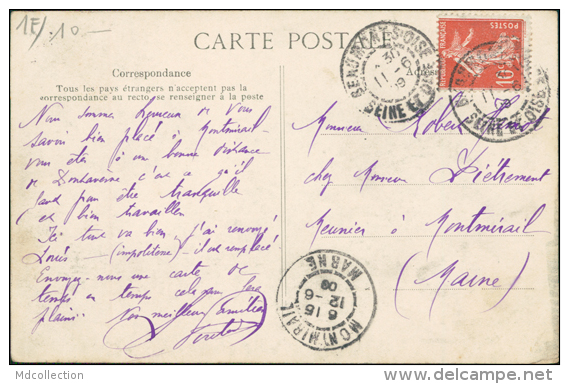 1E/.10—
CARTE POSTALE
Correspondance
Adresse
Tous les pays étrangers n'acceptent pas la
correspondance au recto, se renseigner à la poste
BEAUMONT-S-OISE
11-6
09
SEINE ET OISE
POSTES
10c
Nous sommes heureux de vous
savoir bien placé à Montmirail
vous êtes à une bonne distance
de c'est ce qu'il
faut pour être tranquille
et bien travailler
Ici tout va bien, j'ai renvoyé
Louis — (impolitesse) — il est remplacé
Envoyez-nous une carte de
temps en temps cela nous fera
plaisir. Nos meilleures amitiés
Monsieur Robert
chez Monsieur Diétrement
Meunier à Montmirail
(Marne)
MONTMIRAIL
6 15
12-6
09
MARNE
Mdcollection
delcampe.net